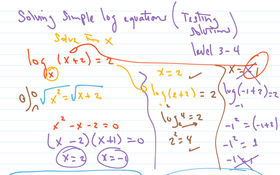 Solving Simple log equations (Testing Solutions)
Solve For x
level 3-4
log_x (x+2) = 2
√x² = √x+2
x² - x - 2 = 0
(x - 2)(x+1) = 0
x = 2 x = -1
x = 2 ✓
log_2 (2+2) = 2
log_2 4 = 2
2² = 4 ✓
x = -1
log_-1 (-1+2) = 2
-1² = (-1+2)
-1² = 1